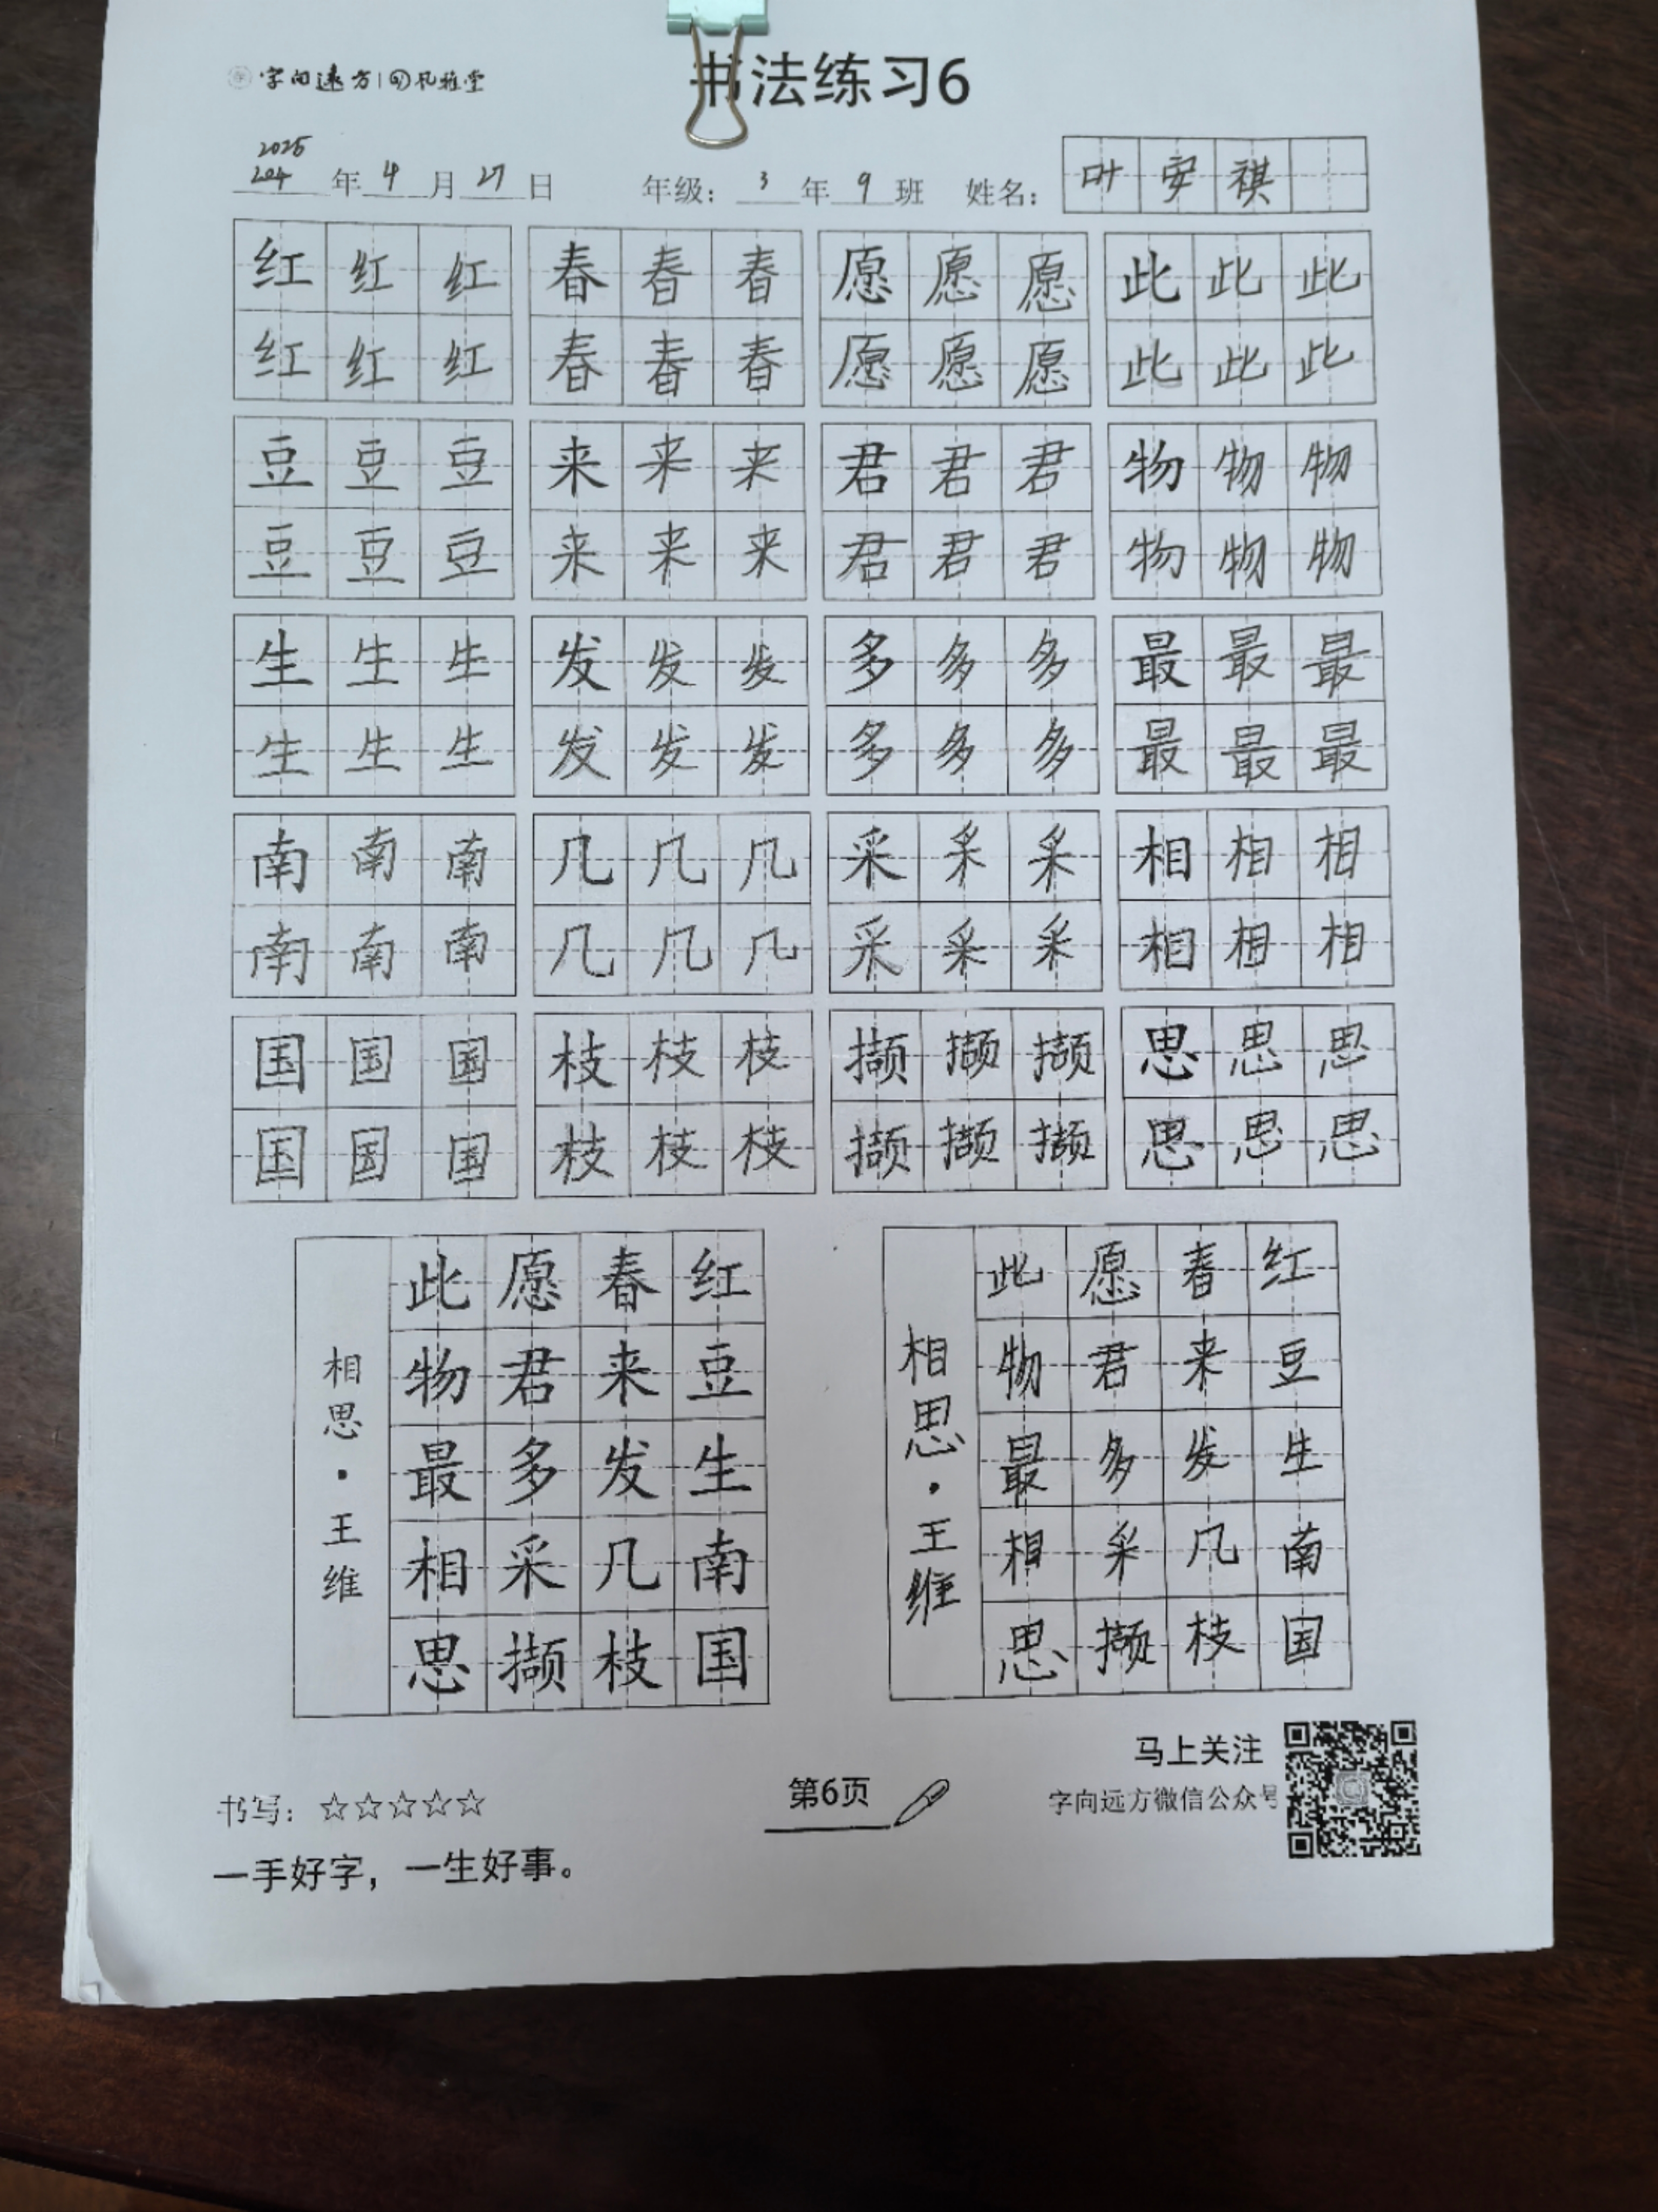 字向远方 | 风雅堂
书法练习6
2025
204 年 4 月 27 日 年级: 3 年 9 班 姓名: 叶安祺
红红红 春春春 愿愿愿 此此此
红红红 春春春 愿愿愿 此此此
豆豆豆 来来来 君君君 物物物
豆豆豆 来来来 君君君 物物物
生生生 发发发 多多多 最最最
生生生 发发发 多多多 最最最
南南南 几几几 采采采 相相相
南南南 几几几 采采采 相相相
国国国 枝枝枝 撷撷撷 思思思
国国国 枝枝枝 撷撷撷 思思思
红豆生南国
春来发几枝
愿君多采撷
此物最相思
相思·王维
红豆生南国
春来发几枝
愿君多采撷
此物最相思
相思·王维
书写: ☆☆☆☆☆
一手好字，一生好事。
第6页
马上关注
字向远方微信公众号